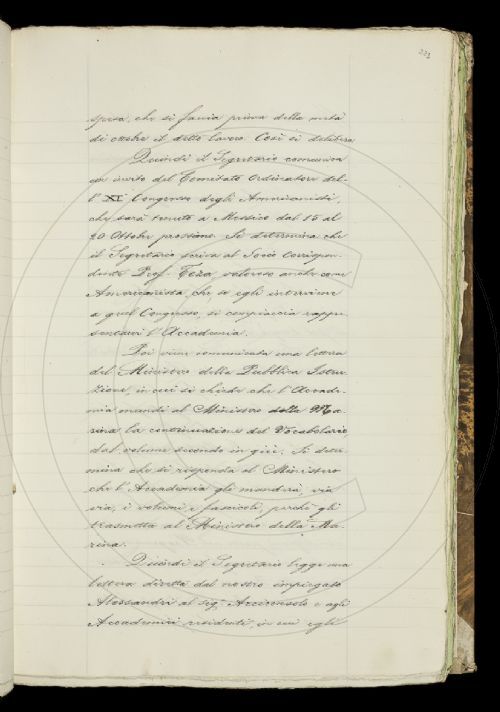 221
spesa, che si faccia prima della metà
di ottobre il detto lavoro. Così si delibera
Quindi il Segretario comunica
un invito del Comitato Ordinatore del-
l' XI Congresso degli Americanisti,
che sarà tenuto a Messico dal 15 al
20 Ottobre prossimo. Si determina che
il Segretario scriva al Socio Corrispon-
dente Prof. Teza, valoroso anche come
Americanista, che se egli interviene
a quel Congresso, si compiaccia rappre-
sentarvi l'Accademia.
Poi viene comunicata una lettera
del Ministero della Pubblica Istru-
zione, in cui si chiede che l'Accade-
mia mandi al Ministero della Ma-
rina la continuazione del Vocabolario
dal volume secondo in giù. Si deter-
mina che si risponda al Ministero
che l'Accademia gli manderà, via
via, i volumi e fascicoli, perchè gli
trasmetta al Ministero della Ma-
rina.
Quindi il Segretario legge una
lettera diretta dal nostro impiegato
Alessandri al sig. Arciconsolo e agli
Accademici residenti, in cui egli